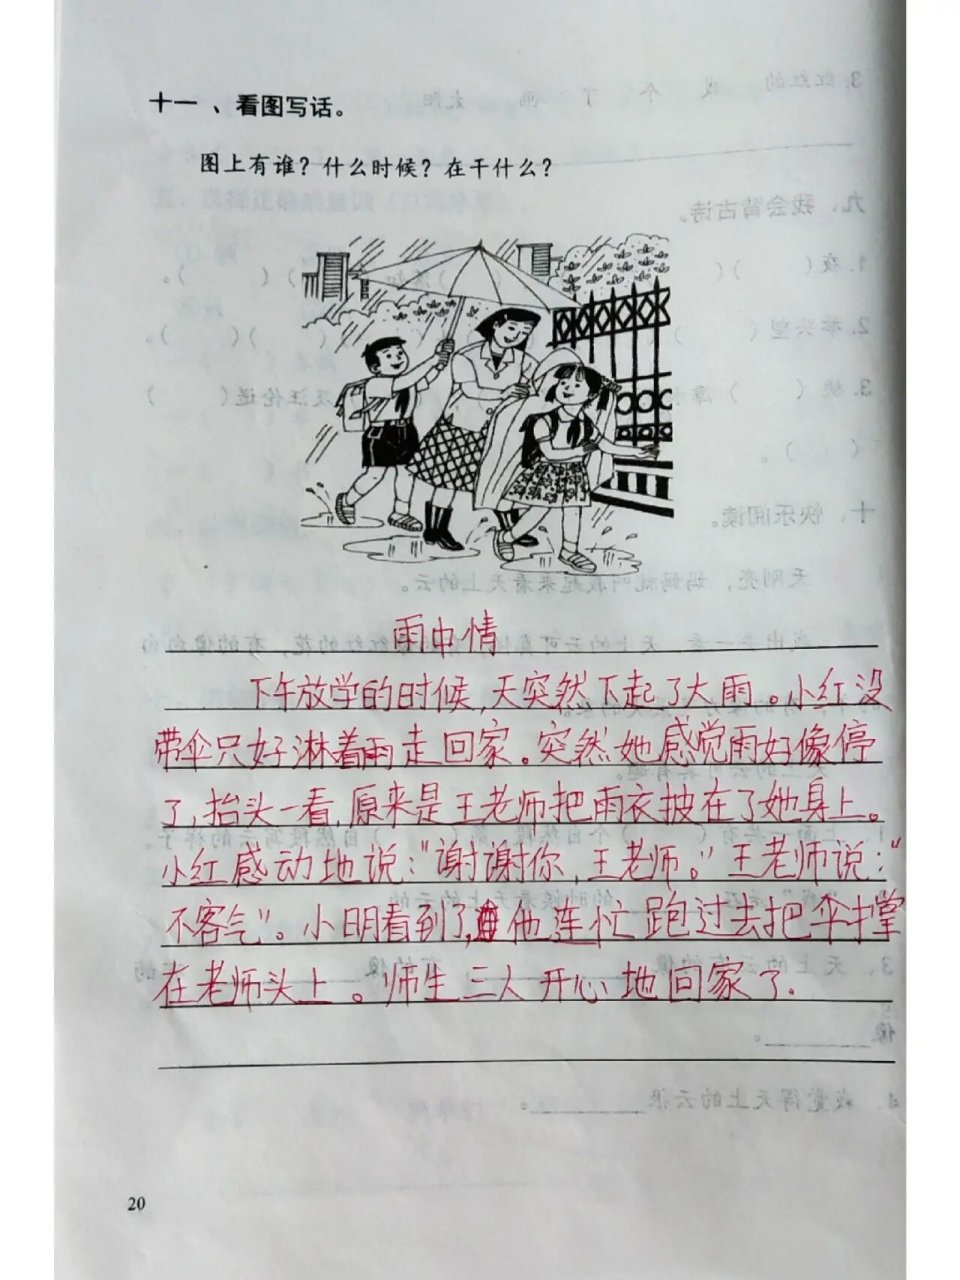 十一、看图写话。
图上有谁？什么时候？在干什么？
雨中情
下午放学的时候,天突然下起了大雨。小红没
带伞只好淋着雨走回家。突然她感觉雨好像停
了,抬头一看,原来是王老师把雨衣披在了她身上。
小红感动地说:"谢谢你,王老师。"王老师说:"
不客气"。小明看到了,他连忙跑过去把伞才掌
在老师头上。师生三人开心地回家了.
20